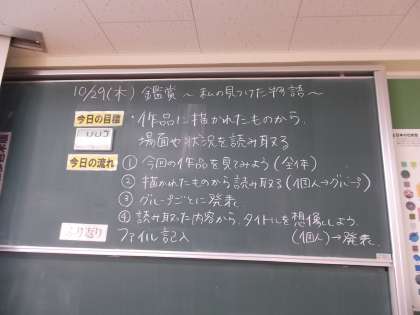 10/29(木) 鑑賞 ~私の見つけた物語~
今日の目標 ・作品に描かれたものから、
場面や状況を読み取る
今日の流れ ① 今回の作品を見てみよう(全体)
② 描かれたものから読み取る(個人→グループ)
③ グループごとに発表
④ 読み取った内容から、タイトルを想像しよう。
(個人)→発表
ふり返り ファイル記入